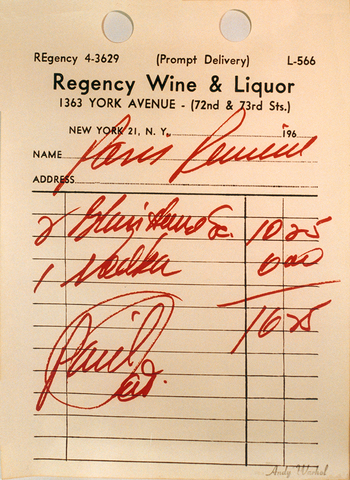 REgency 4-3629 (Prompt Delivery) L-566
Regency Wine & Liquor
1363 YORK AVENUE - (72nd & 73rd Sts.)
NEW YORK 21, N. Y. 196
NAME Paris Review
ADDRESS
2 10 25
1 Vodka 6 00
16 25
Paid
Andy Warhol